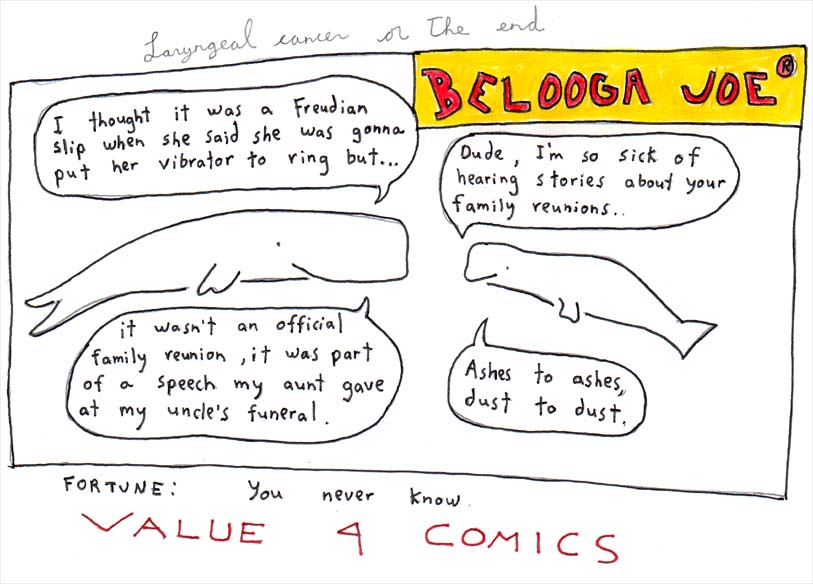 Laryngeal cancer or The end
BELOOGA JOE®
I thought it was a Freudian
slip when she said she was gonna
put her vibrator to ring but...
Dude, I'm so sick of
hearing stories about your
family reunions..
it wasn't an official
family reunion, it was part
of a speech my aunt gave
at my uncle's funeral.
Ashes to ashes,
dust to dust.
FORTUNE: You never know.
VALUE 4 COMICS